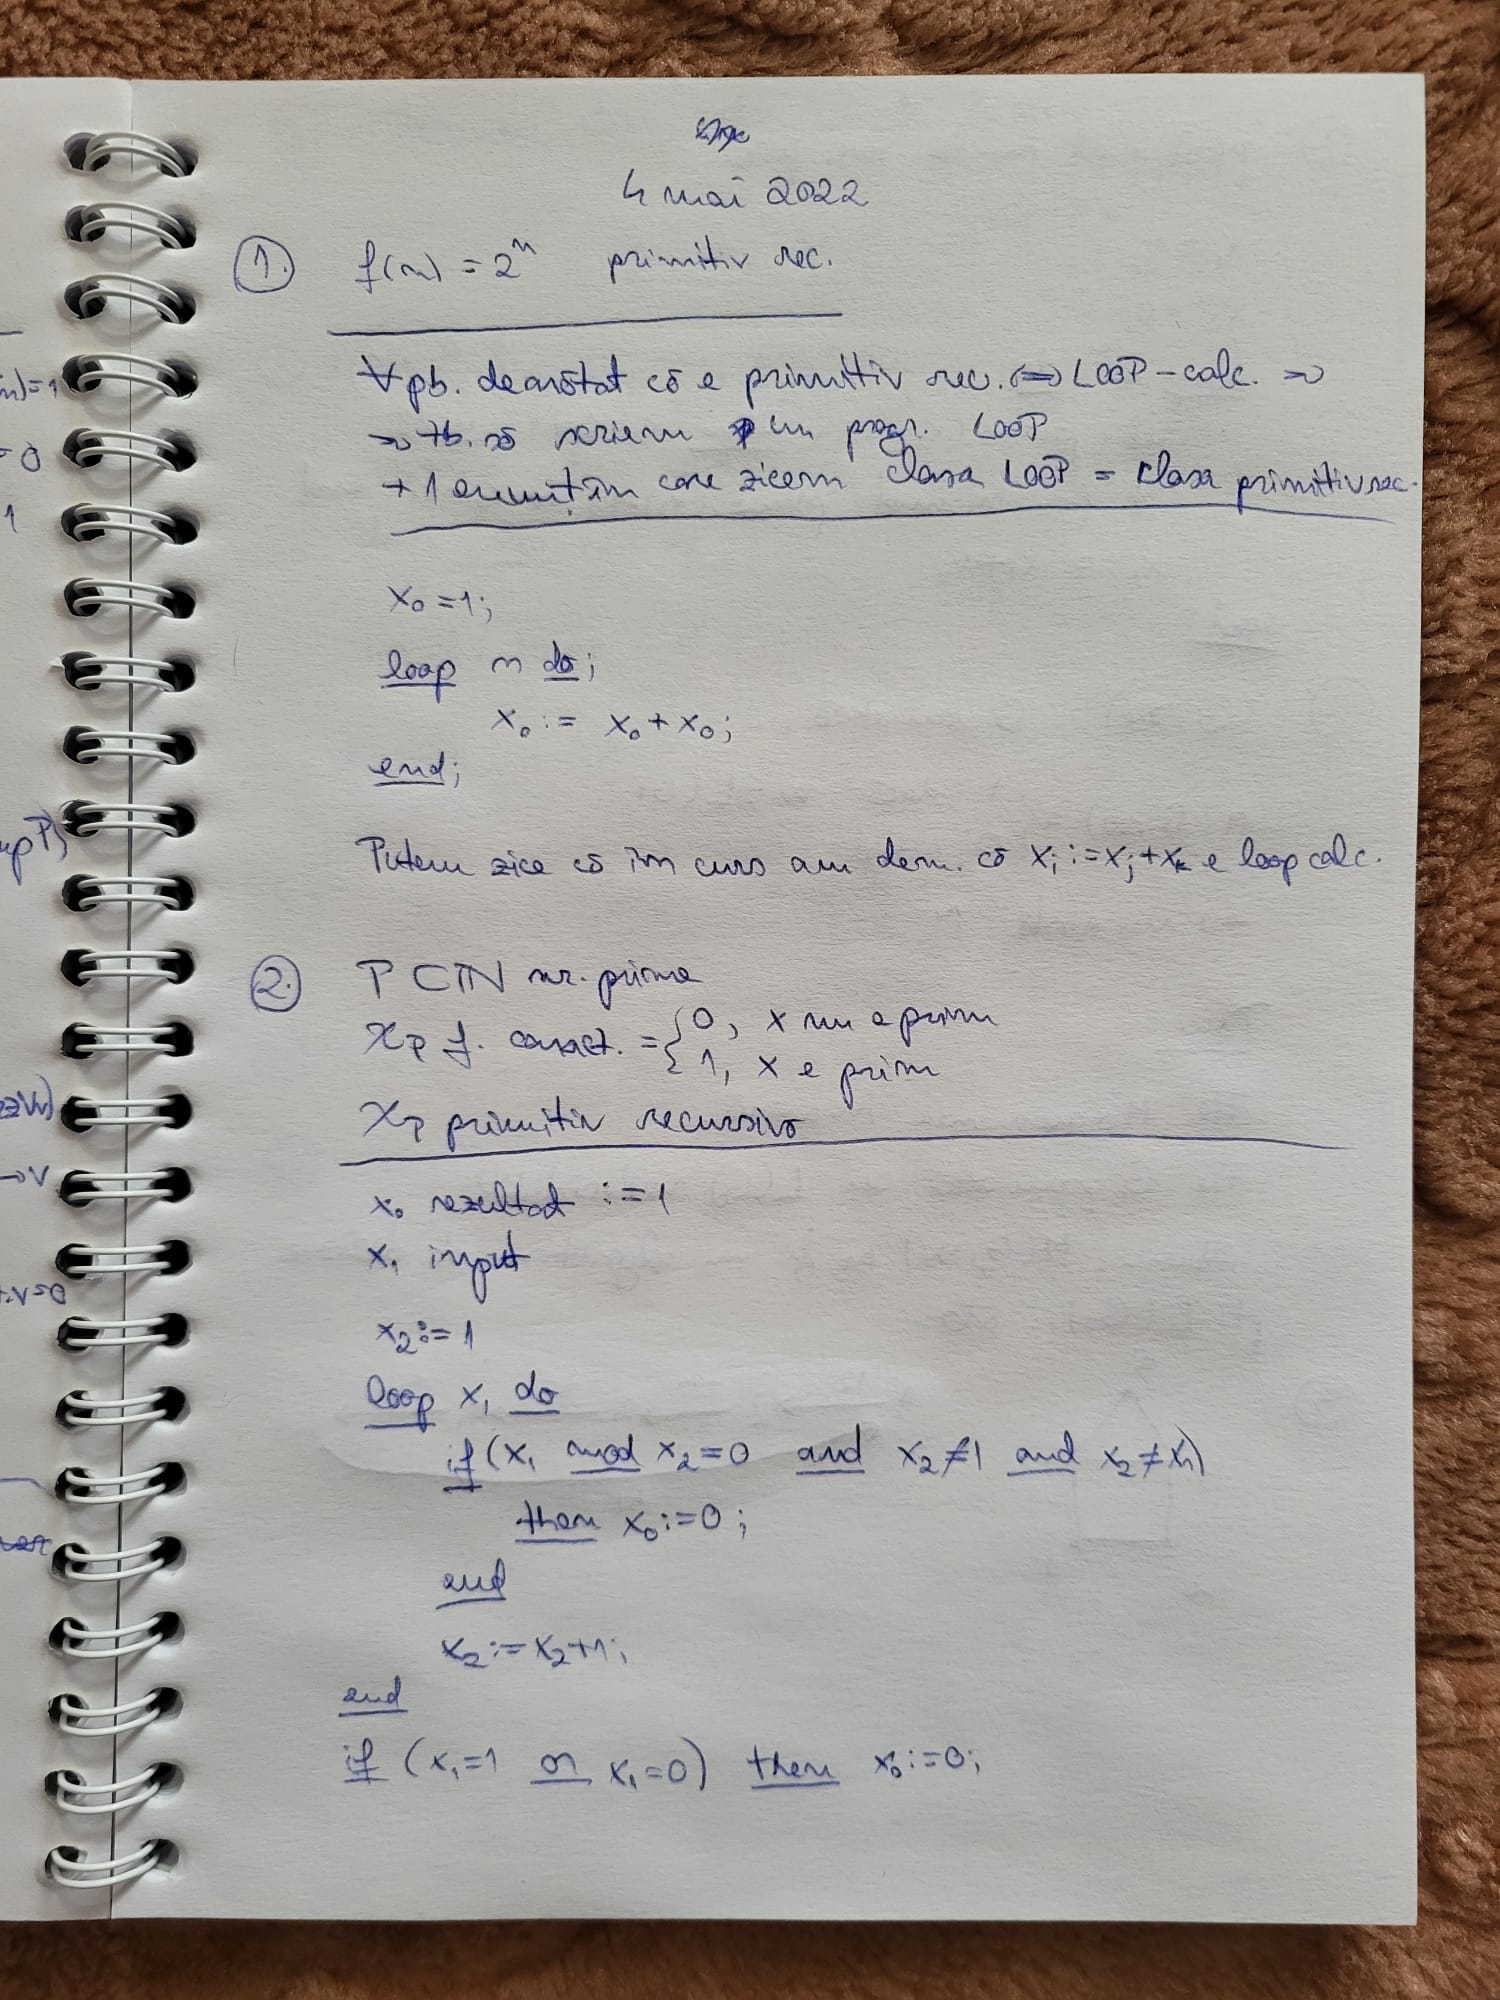 4 mai 2022
1. f(n) = 2^n primitiv rec.
∀ pb. de arătat că e primitiv rec. ⇔ LOOP-calc. ⇒
⇒ tb. să scriem un progr. LOOP
+ 1 enunț în care zicem clasa LOOP = clasa primitiv rec.
x₀ = 1;
loop n do;
x₀ := x₀ + x₀;
end;
Putem zice că în curs am dem. că xᵢ := xⱼ + xₖ e loop calc.
2. P ⊂ ℕ nr. prime
χ_P f. caract. = { 0, x nu e prim
1, x e prim
χ_P primitiv recursivă
x₀ rezultat := 1
x₁ input
x₂ := 1
loop x₁ do
if (x₁ mod x₂ = 0 and x₂ ≠ 1 and x₂ ≠ x₁)
then x₀ := 0;
end
x₂ := x₂ + 1;
end
if (x₁ = 1 or x₁ = 0) then x₀ := 0;